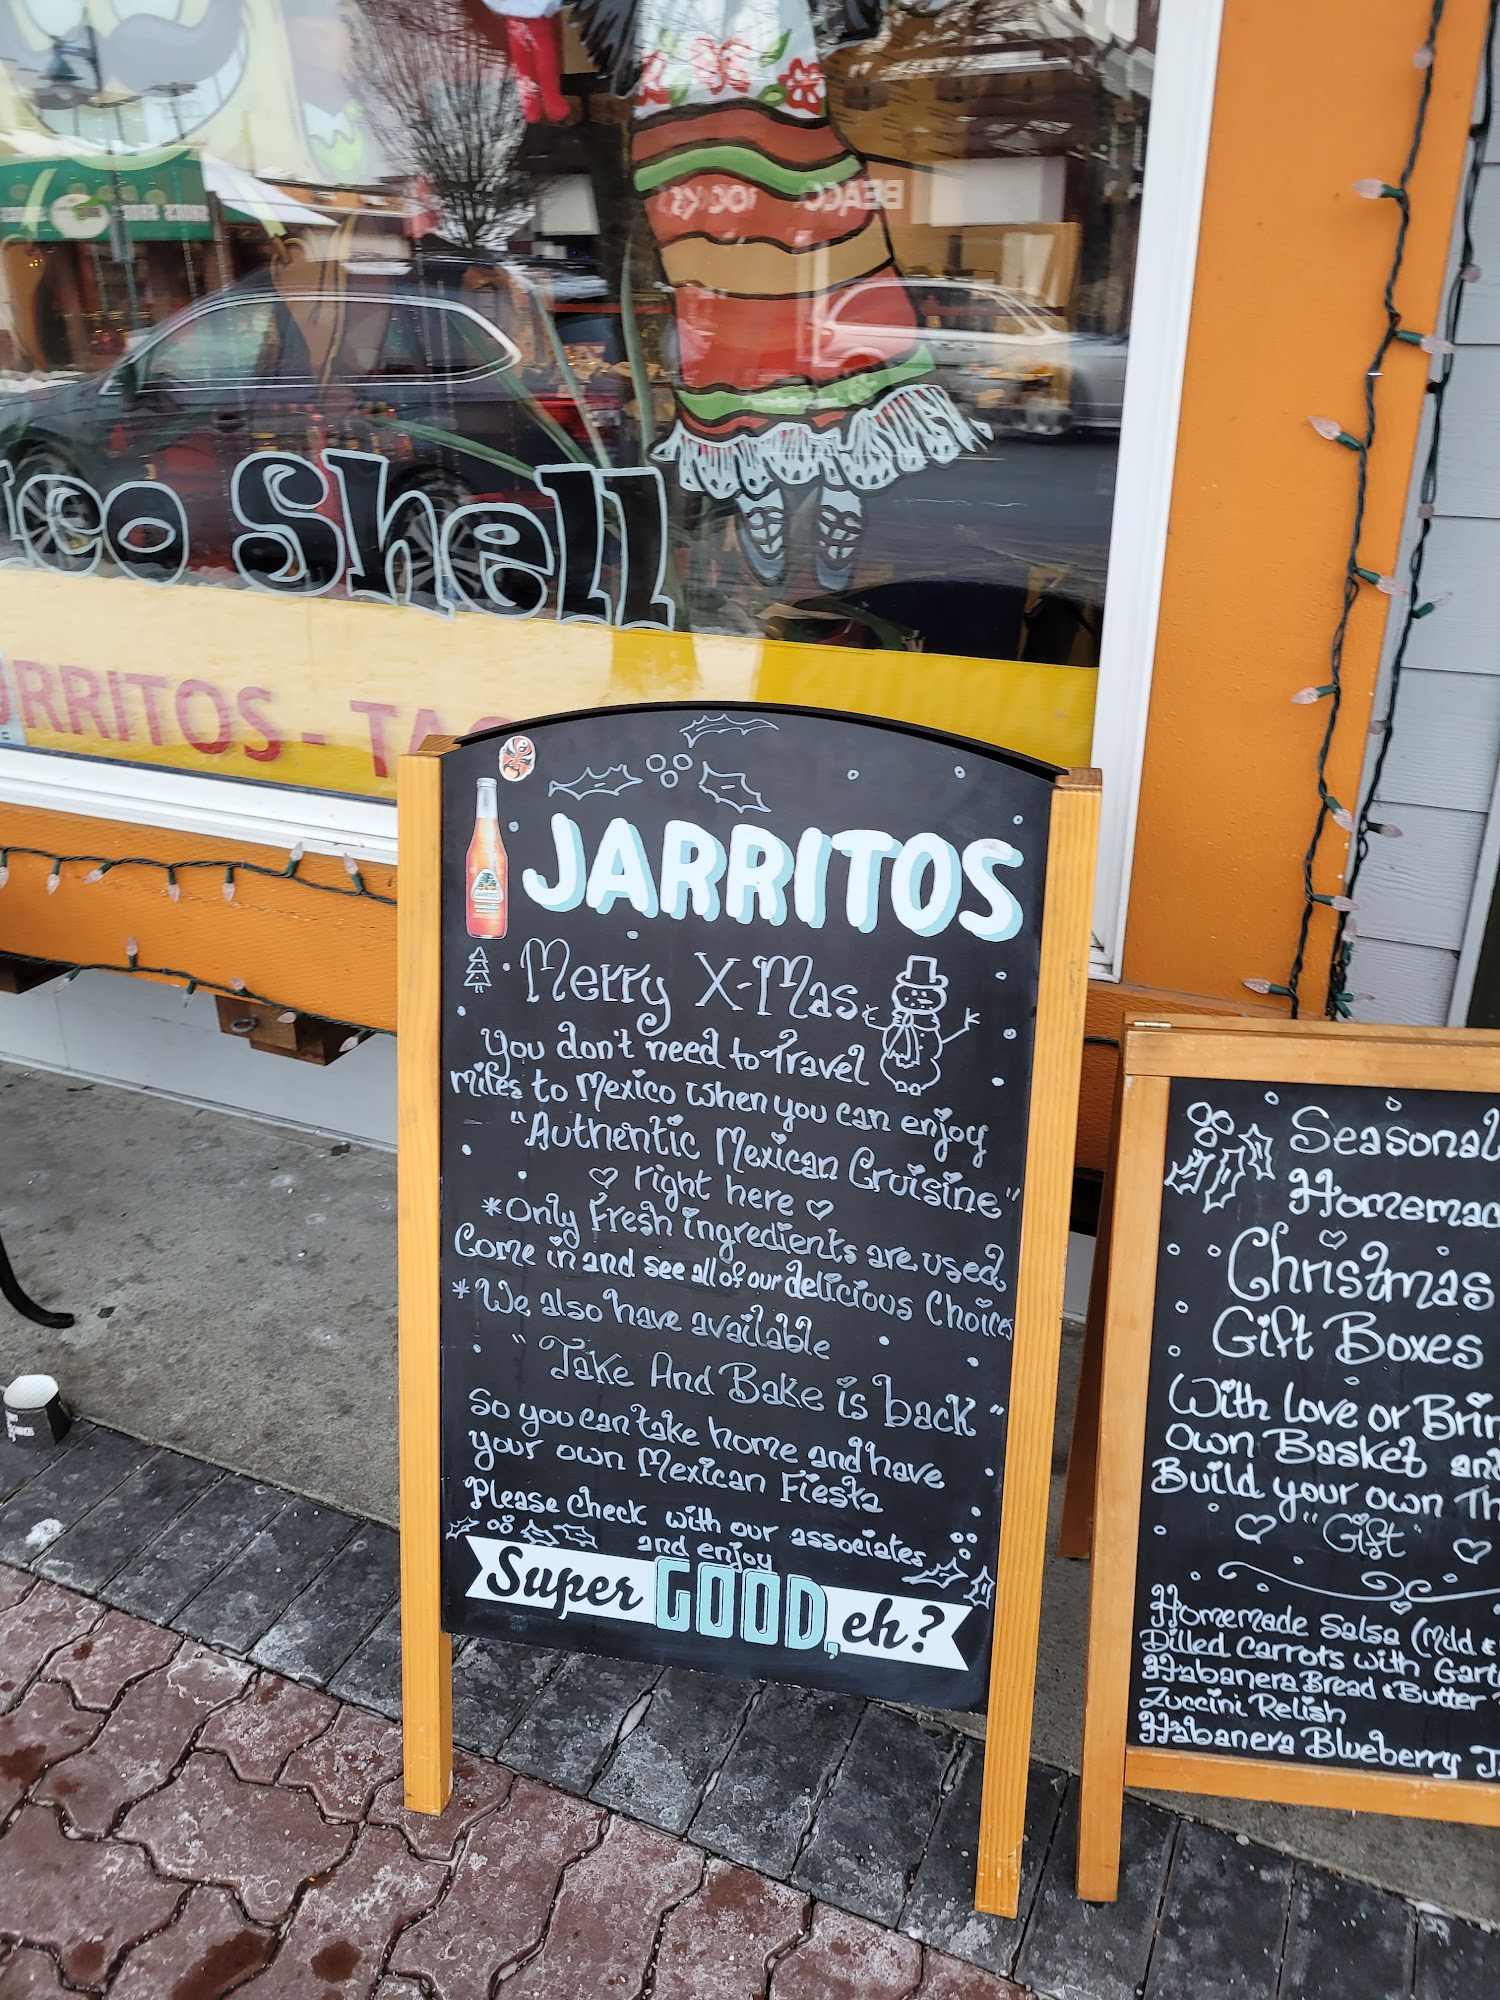 Shell
RRITOS - TA
JARRITOS
Merry X-Mas
You don't need to Travel
miles to Mexico when you can enjoy
"Authentic Mexican Cruisine"
right here
*Only Fresh ingredients are used
Come in and see all of our delicious Choices
*We also have available
" Take And Bake is back "
So you can take home and have
your own Mexican Fiesta
Please Check with our associates
and enjoy
Super GOOD, eh?
Seasonal
Homemad
Christmas
Gift Boxes
With love or Brin
Own Basket and
Build your own Th
"Gift"
Homemade Salsa (Mild &
Dilled Carrots with Garl
Habanera Bread & Butter
Zuccini Relish
Habanera Blueberry J